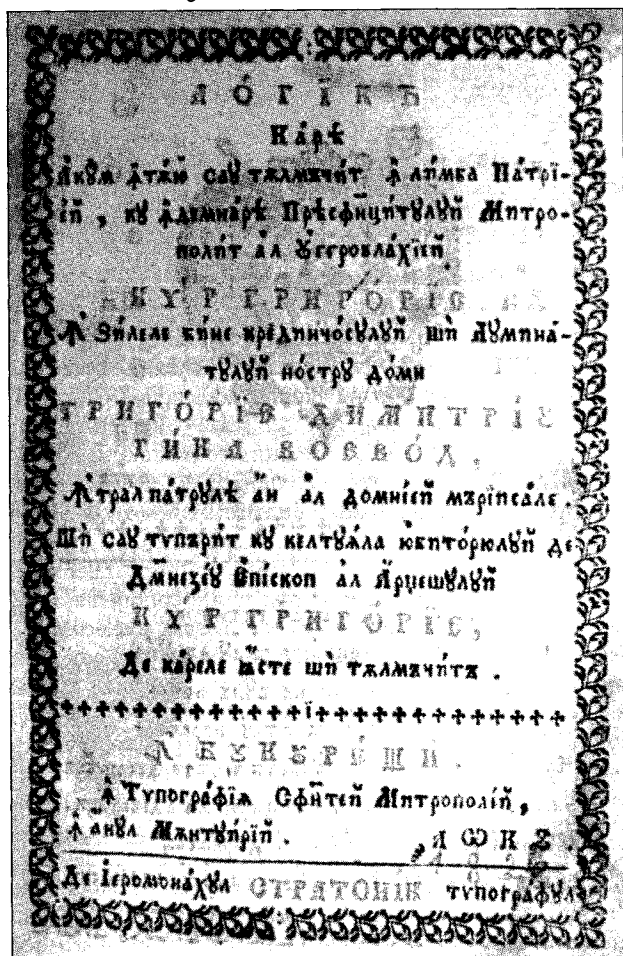 ЛО́ГЇКЪ
Ка́рѣ
Акꙋм ꙟтѫю саꙋ тѫлмъчи́т ꙟ ли́мба Па́трї-
їй , кꙋ ꙟдемна́рѣ Прѣсфн҃ци́тꙋлꙋй Митро-
поли́т ал Ꙋ́ггровлахїей
КѴ́Р ГРИГО́РЇЄ
ꙟ Зи́леле бине кредпнчо́сꙋлꙋй шѝ Лꙋмина́-
тꙋлꙋй но́стрꙋ до́мн
ГРИГО́РЇЄ ДИМИТРЇ́Є
ГИ́КА ВОЄВО́Д ,
ꙟтрал па́трꙋлѣ ан ал домнїей мърїиса́ле .
Шѝ саꙋ тѵпъри́т кꙋ келтꙋѧ́ла юбито́рюлꙋй де
Дм҃незе́ꙋ Єпі́скоп ал А́рцешꙋлꙋй
КѴ́Р ГРИГО́РЇЄ ,
Де ка́реле ꙗ́сте шѝ тѫлмъчи́тъ .
ꙟ БꙊКꙊРЕ́ЩИ .
ꙟ Тѵпогра́фїѧ Сфи́нтей Митрополі́й ,
ꙟ а́нꙋл Мѫнтꙋи́рїй . ҂АѠКЅ .
1826
Де Іеромона́хꙋл СТРАТОНІК тѵпогра́фꙋл